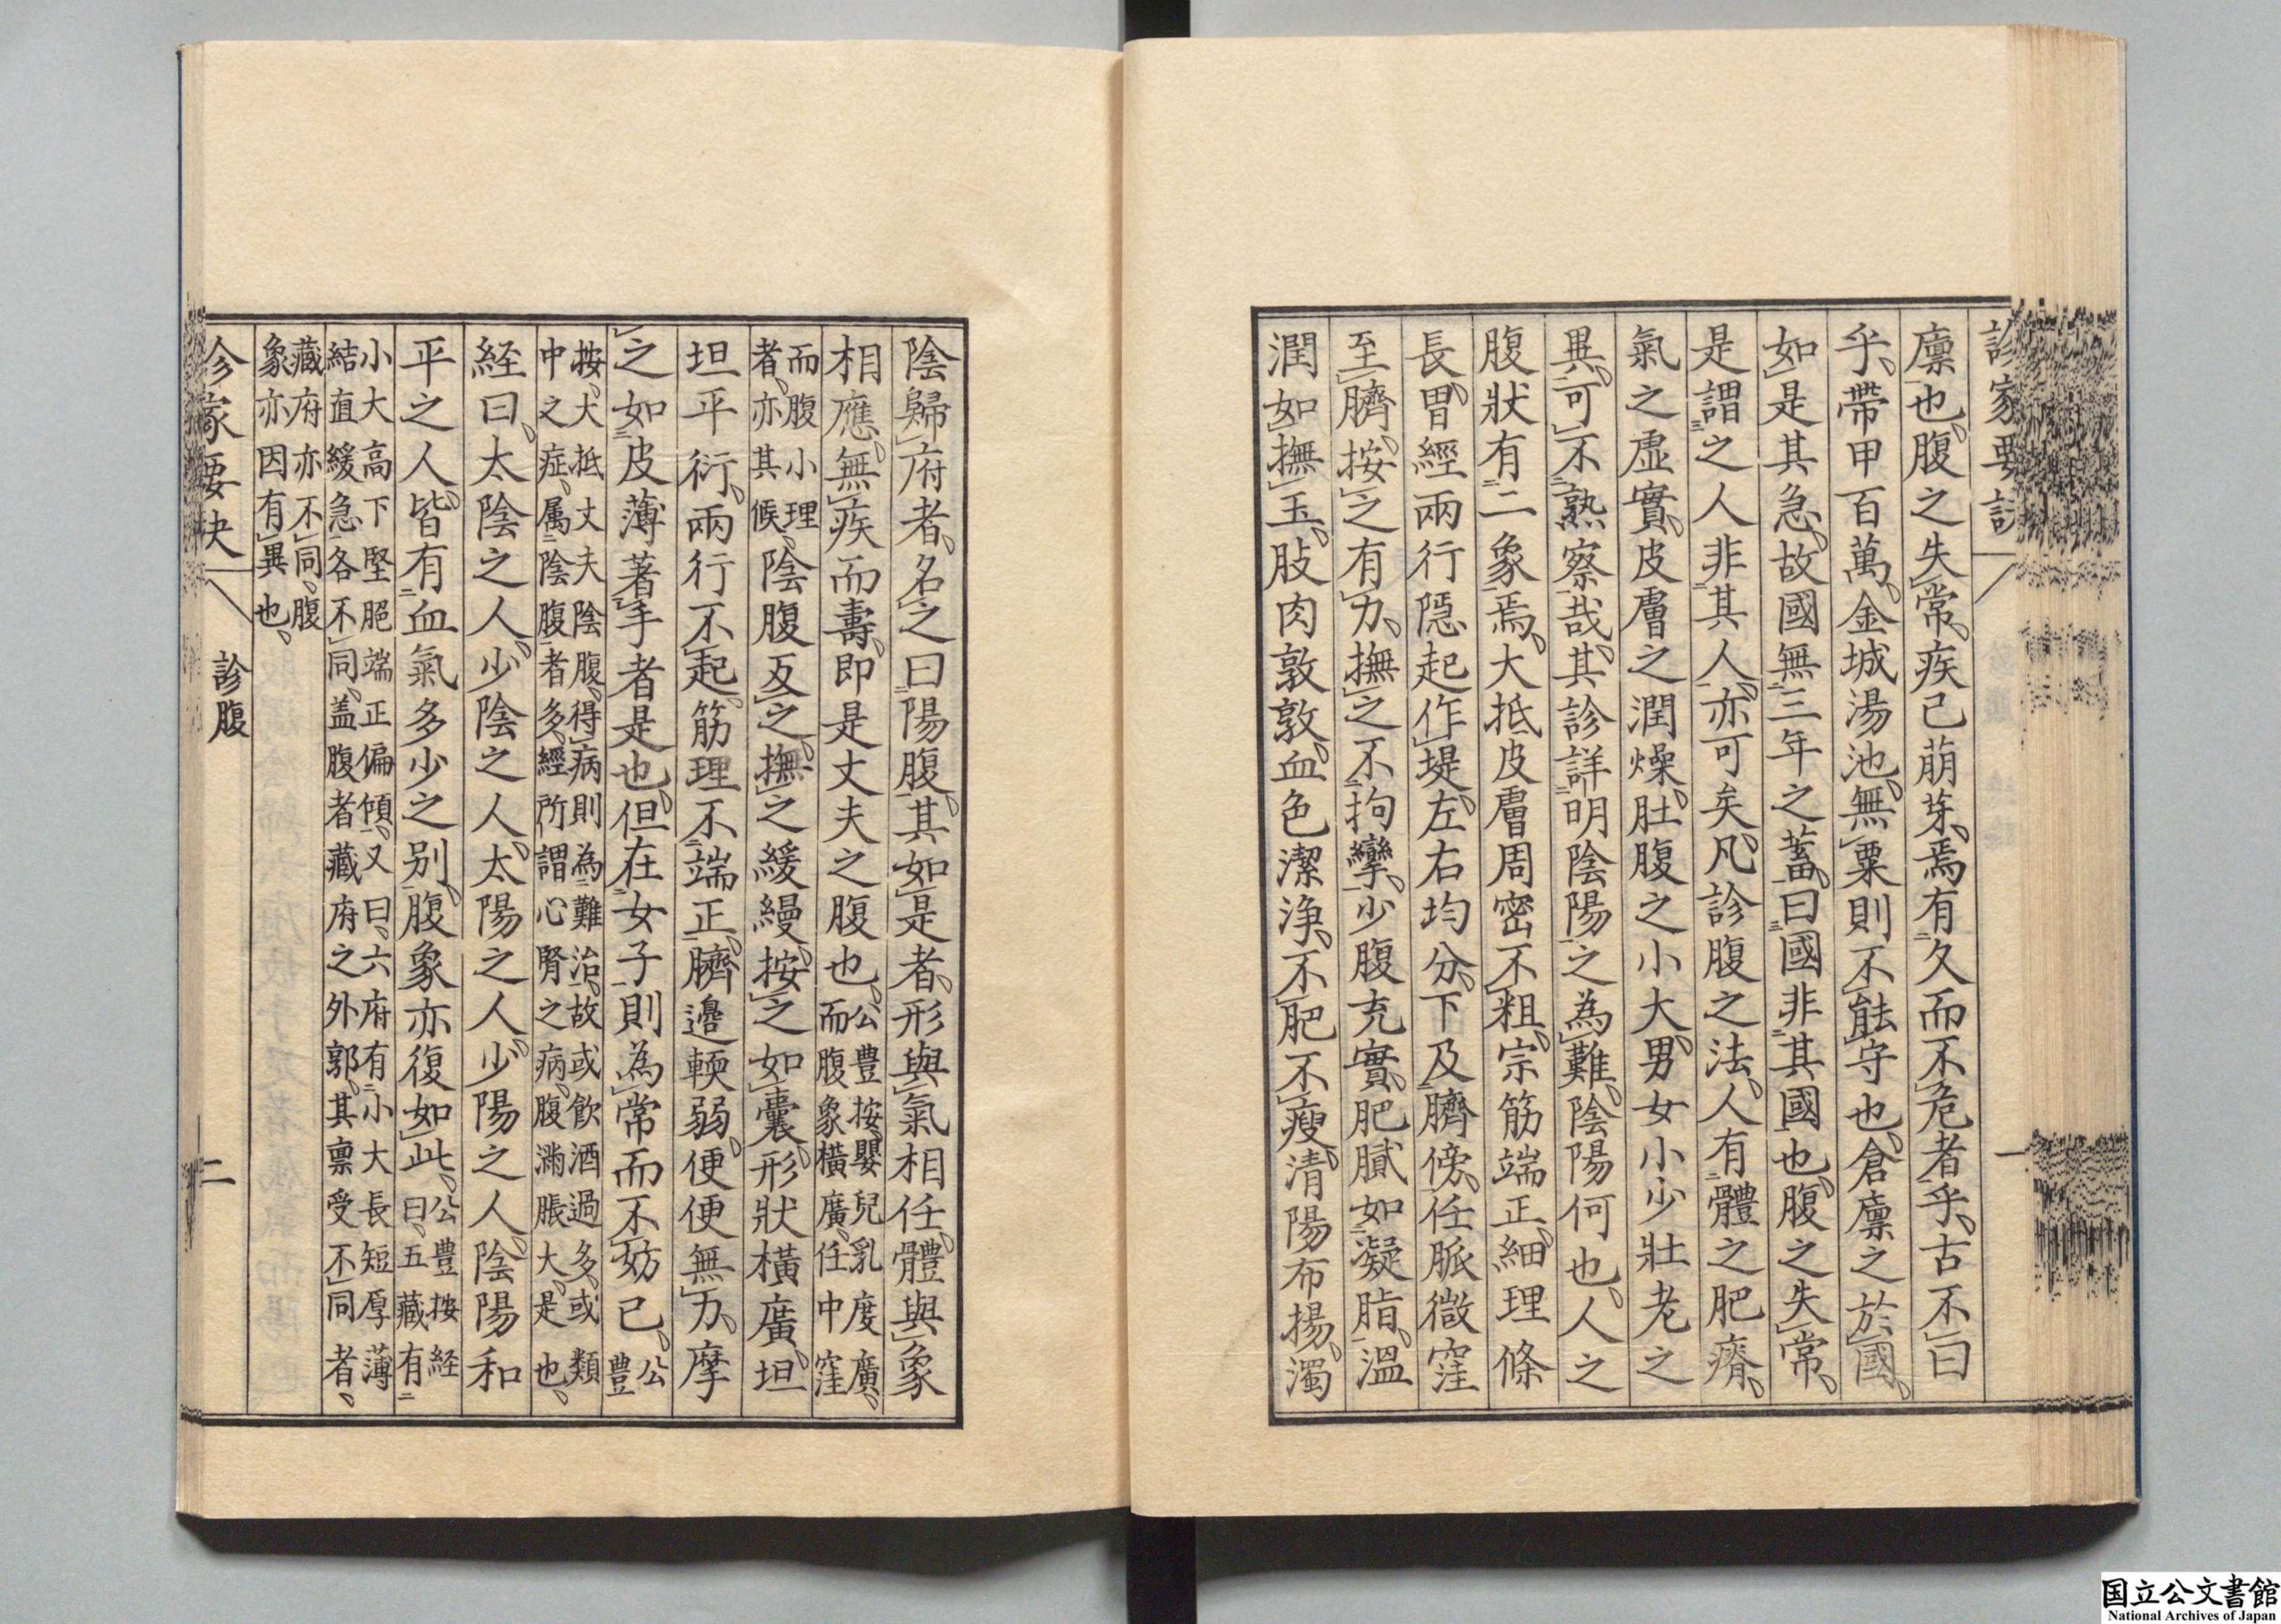 診家要訣
一
廩也、腹之失常、疾已萠芽、焉有久而不危者乎、古不曰
乎、帶甲百萬、金城湯池、無粟則不能守也、倉廩之於國、
如是其急、故國無三年之蓄、曰國非其國也、腹之失常、
是謂之人非其人、亦可矣、凡診腹之法、人有體之肥瘠、
氣之虛實、皮膚之潤燥、肚腹之小大、男女小少壯老之
異、可不熟察哉、其診詳明陰陽之為難、陰陽何也、人之
腹狀有二象焉、大抵皮膚周密不粗、宗筋端正、細理條
長、胃經兩行隱起作堤、左右均分、下及臍傍、任脈微窪
至臍、按之有力、撫之不拘攣、少腹充實、肥膩如凝脂、溫
潤如撫玉、肢肉敦敦、血色潔淨、不肥不瘦、清陽布揚、濁
陰歸府者、名之曰陽腹、其如是者、形與氣相任、體與象
相應、無疾而壽、即是丈夫之腹也、公豊按、嬰兒乳度廣、
而腹象橫廣、任中窪
而腹小理
者、亦其候、陰腹反之、撫之緩縵、按之如囊、形狀橫廣、坦
坦平衍、兩行不起、筋理不端正、臍邊輭弱、便便無力、摩
之如皮薄著手者是也、但在女子則為常而不妨已、公
豊
按、大抵丈夫陰腹、得病則為難治、故或飲酒過多、或類
中之症、属陰腹者多、經所謂心腎之病、腹滿脹大、是也、
経曰、太陰之人、少陰之人、太陽之人、少陽之人、陰陽和
平之人、皆有血氣多少之別、腹象亦復如此、公豊按経
曰、五藏有
小大高下堅脆端正偏傾、又曰、六府有小大長短厚薄
結直緩急、各不同、盖腹者藏府之外郭、其禀受不同者、
藏府亦不同、腹
象亦因有異也、
診家要訣
診腹
二
国立公文書館
National Archives of Japan